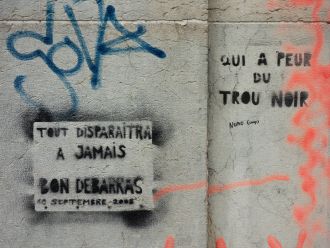 SOVA
TOUT DISPARAITRA
A JAMAIS
BON DEBARRAS
10 SEPTEMBRE 2008
QUI A PEUR
DU
TROU NOIR